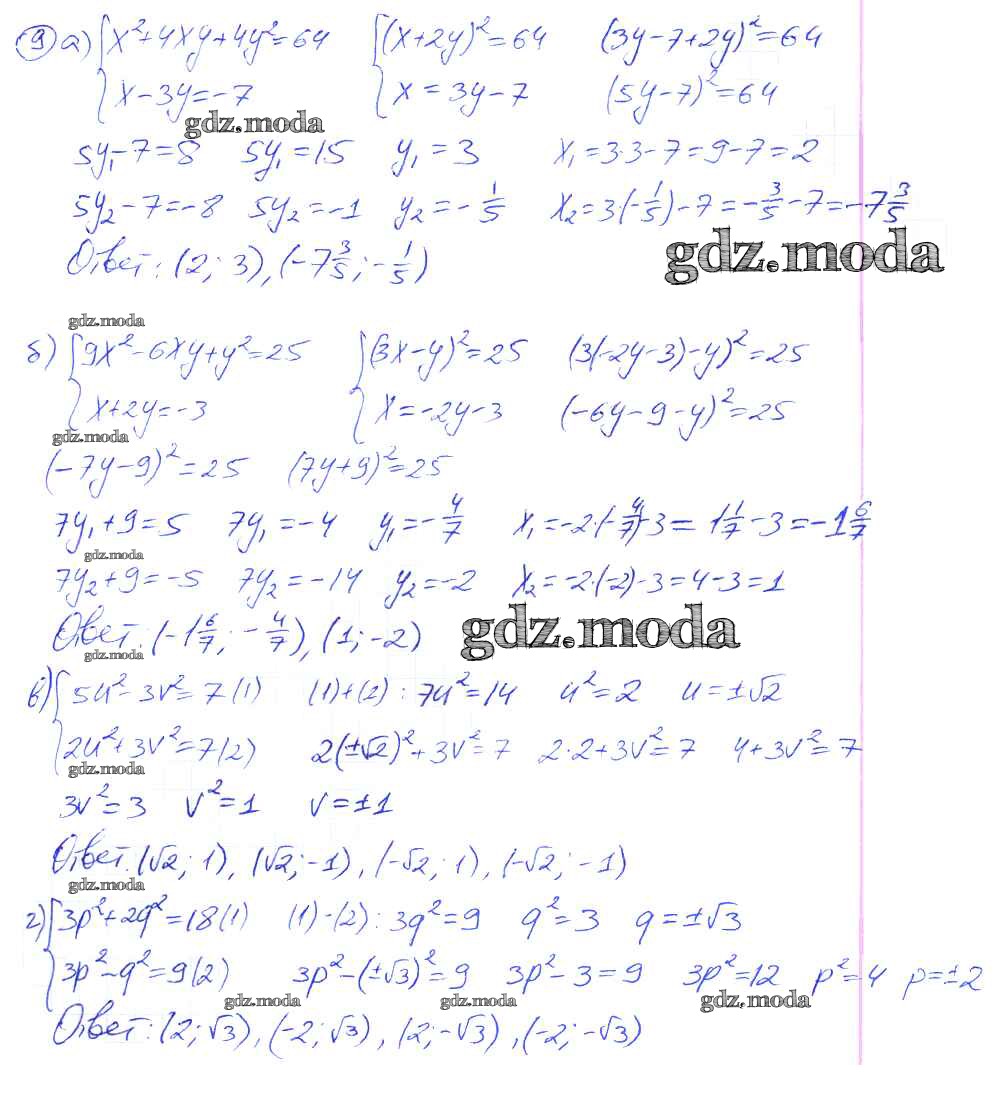 9 а) { x²+4xy+4y²=64 { (x+2y)²=64 (3y-7+2y)²=64
x-3y=-7 x=3y-7 (5y-7)²=64
gdz.moda
5y₁-7=8 5y₁=15 y₁=3 x₁=3·3-7=9-7=2
5y₂-7=-8 5y₂=-1 y₂=-1/5 x₂=3(-1/5)-7=-3/5-7=-7 3/5
gdz.moda
Ответ: (2; 3), (-7 3/5; -1/5)
gdz.moda
б) { 9x²-6xy+y²=25 { (3x-y)²=25 (3(-2y-3)-y)²=25
x+2y=-3 x=-2y-3 (-6y-9-y)²=25
gdz.moda
(-7y-9)²=25 (7y+9)²=25
7y₁+9=5 7y₁=-4 y₁=-4/7 x₁=-2·(-4/7)-3=1 1/7-3=-1 6/7
gdz.moda
7y₂+9=-5 7y₂=-14 y₂=-2 x₂=-2·(-2)-3=4-3=1
gdz.moda
Ответ: (-1 6/7; -4/7), (1; -2)
gdz.moda
в) { 5u²-3v²=7 (1) (1)+(2): 7u²=14 u²=2 u=±√2
2u²+3v²=7 (2) 2(±√2)²+3v²=7 2·2+3v²=7 4+3v²=7
gdz.moda
3v²=3 v²=1 v=±1
Ответ: (√2; 1), (√2; -1), (-√2; 1), (-√2; -1)
gdz.moda
г) { 3p²+2q²=18 (1) (1)-(2): 3q²=9 q²=3 q=±√3
3p²-q²=9 (2) 3p²-(±√3)²=9 3p²-3=9 3p²=12 p²=4 p=±2
gdz.moda gdz.moda gdz.moda
Ответ: (2; √3), (-2; √3), (2; -√3), (-2; -√3)